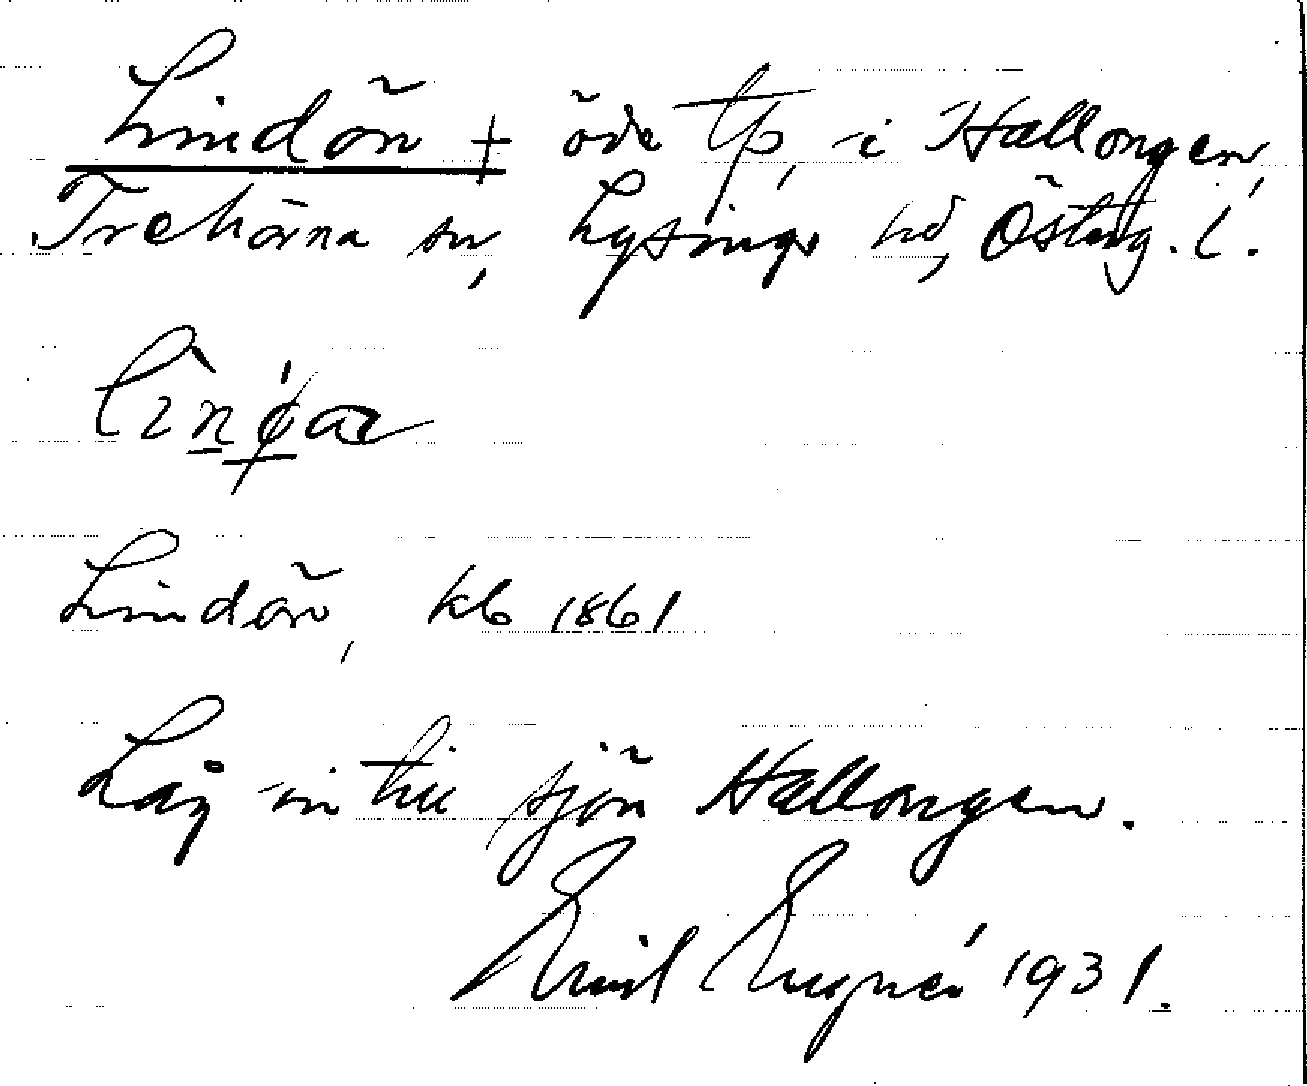 Lindön + öde tp, i Hällongen,
Trehörna sn, Lysings hd, Österg. l.
Lindön, kb 1861
Låg in till sjön Hällongen.
Emil 1931.